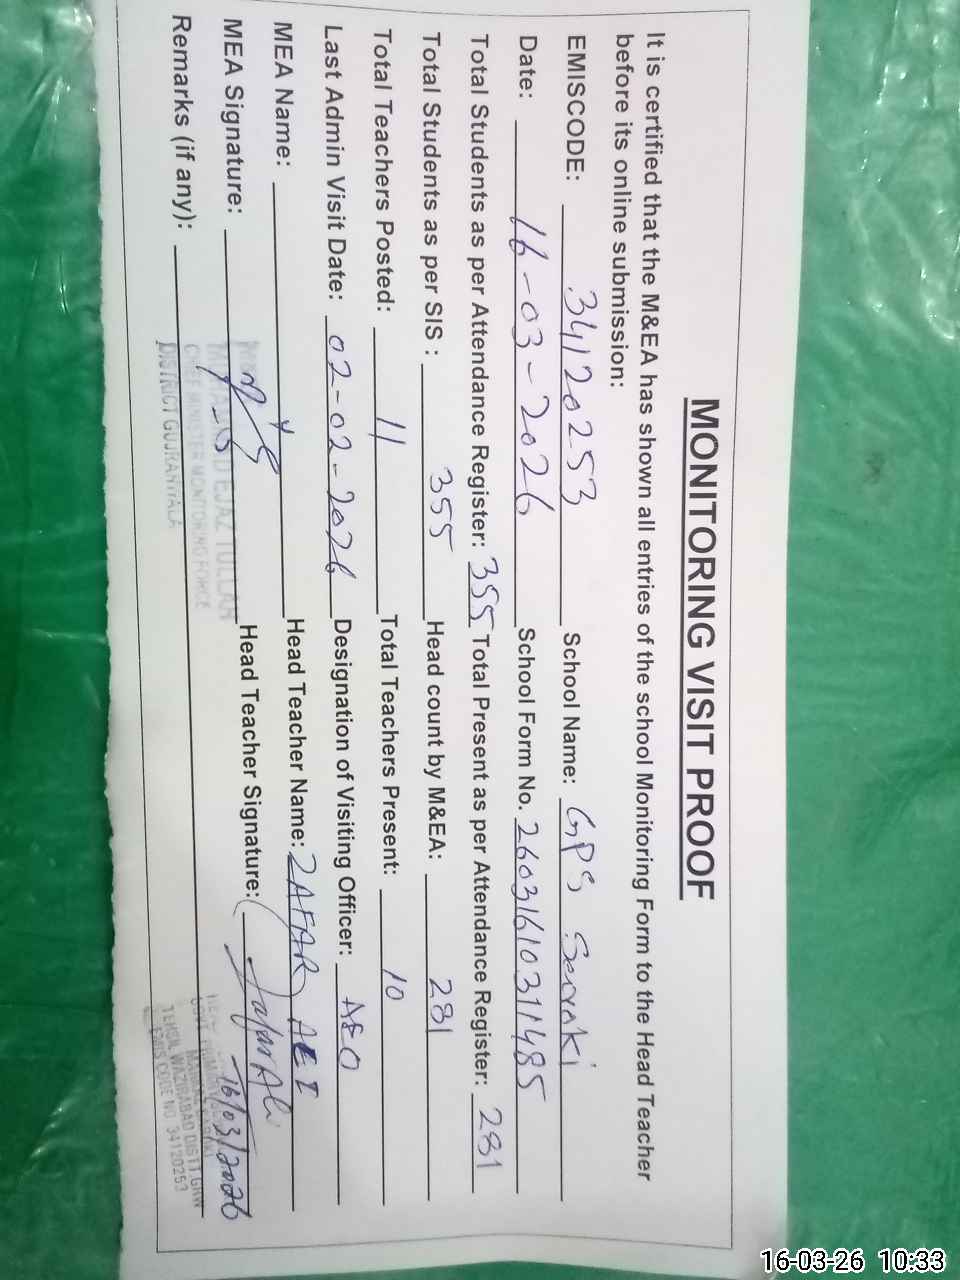 MONITORING VISIT PROOF
It is certified that the M&EA has shown all entries of the school Monitoring Form to the Head Teacher
before its online submission:
EMISCODE: 34120253 School Name: GPS Saroki
Date: 16-03-2026 School Form No. 2603161031485
Total Students as per Attendance Register: 355 Total Present as per Attendance Register: 281
Total Students as per SIS : 355 Head count by M&EA: 281
Total Teachers Posted: 11 Total Teachers Present: 10
Last Admin Visit Date: 02-02-2026 Designation of Visiting Officer: AEO
MEA Name: Head Teacher Name: ZAFAR ALI
MEA Signature: Head Teacher Signature: Zafar Ali
16/03/2026
Remarks (if any):
EJAZ TULLAH
CHIEF MINISTER MONITORING FORCE
DISTRICT GUJRANWALA
TEHSIL WAZIRABAD DISTT GRW
EMIS CODE NO 34120253
16-03-26 10:33